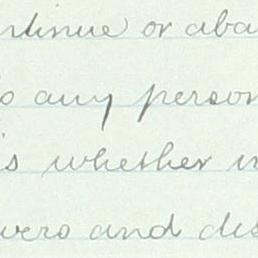 ntinue or aba
o any person
s whether in
wers and dis